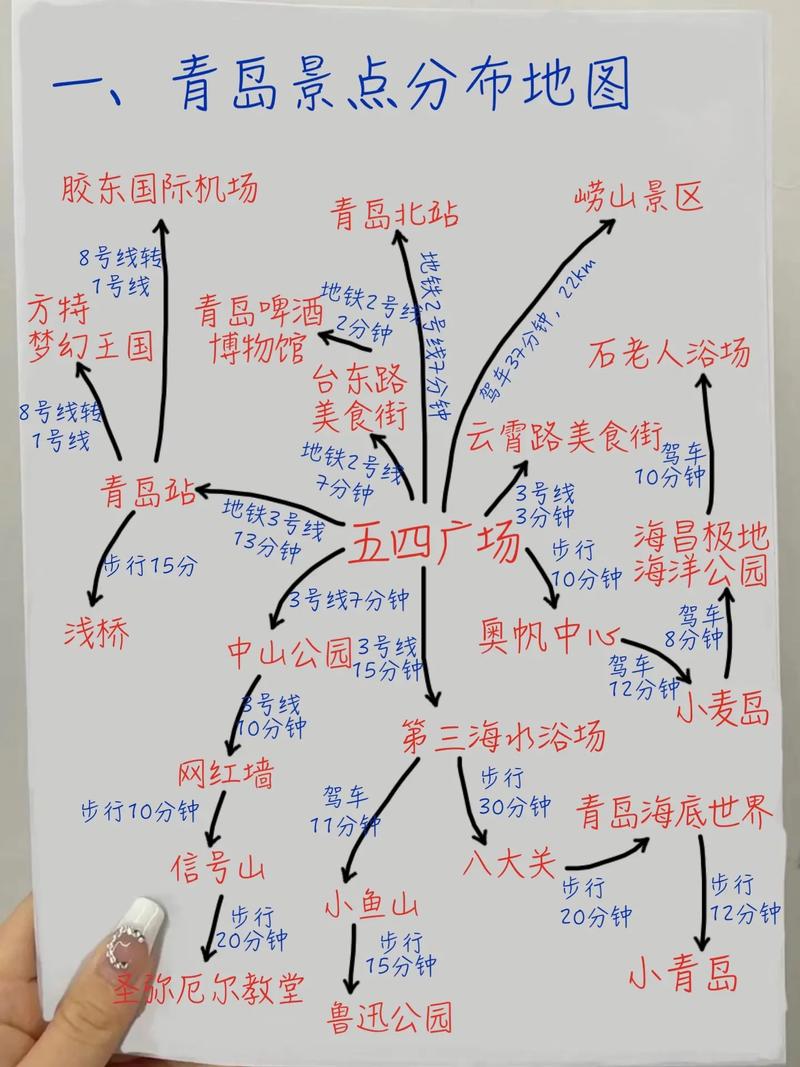 一、青岛景点分布地图
胶东国际机场
青岛北站
崂山景区
8号线转
1号线
地铁2号线7分钟
驾车37分钟，22km
方特
梦幻王国
青岛啤酒
博物馆
地铁2号线
2分钟
台东路
美食街
石老人浴场
8号线转
1号线
地铁2号线
7分钟
云霄路美食街
驾车
10分钟
青岛站
地铁3号线
13分钟
3号线
3分钟
五四广场
海昌极地
海洋公园
步行15分
步行
10分钟
浅桥
3号线7分钟
中山公园
3号线
15分钟
奥帆中心
驾车
8分钟
驾车
12分钟
小麦岛
3号线
10分钟
第三海水浴场
网红墙
步行10分钟
驾车
11分钟
步行
30分钟
青岛海底世界
信号山
八大关
步行
20分钟
步行
12分钟
步行
20分钟
小鱼山
步行
15分钟
圣弥厄尔教堂
鲁迅公园
小青岛